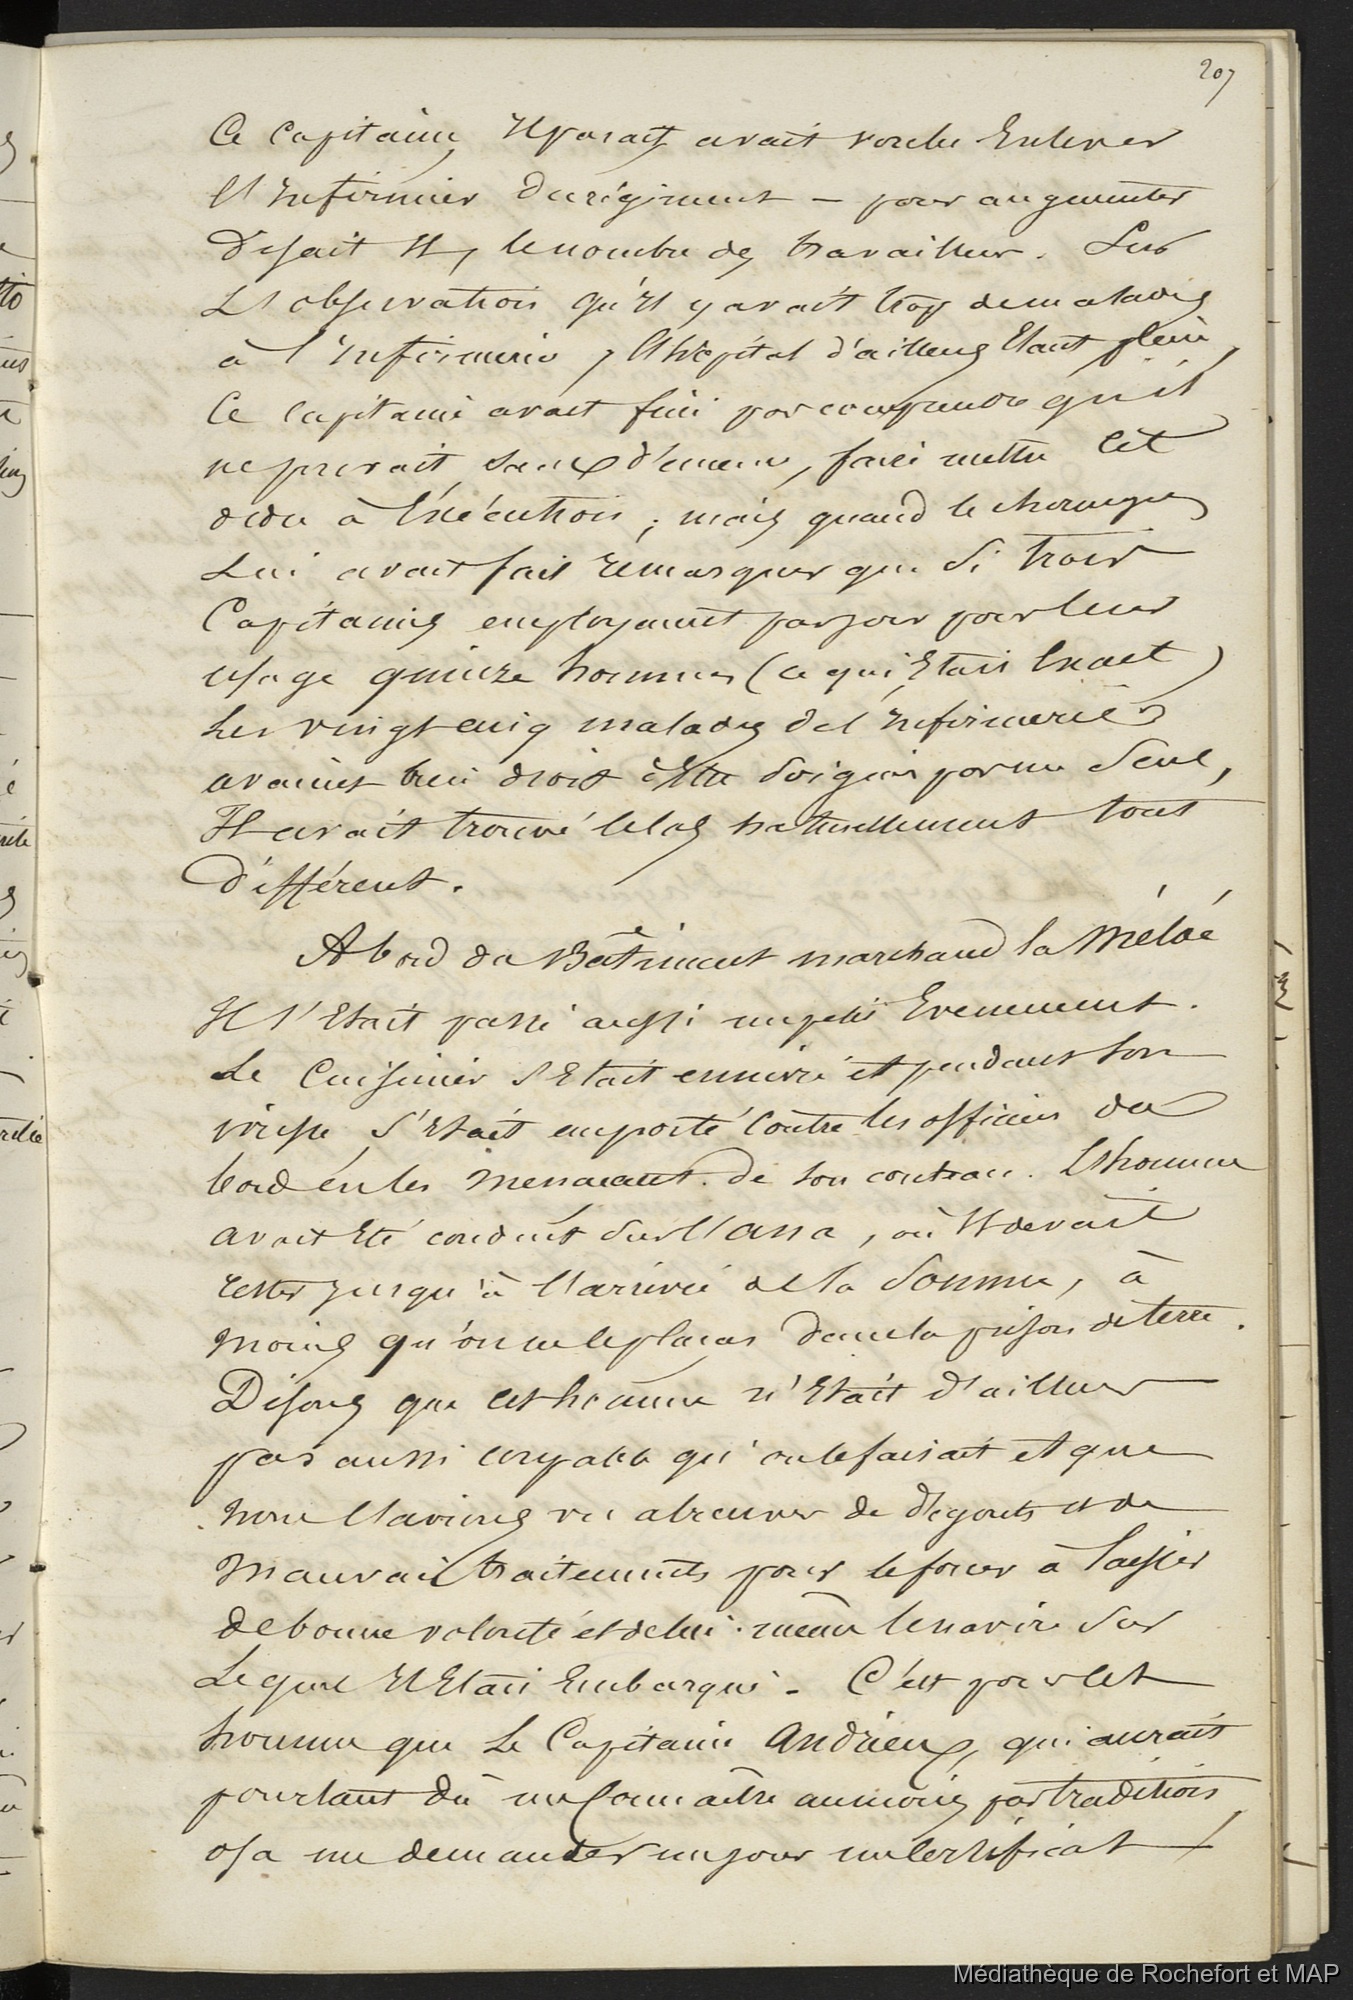 207
Ce capitaine, Il parait, avait voulu Enlever
l'Infirmier du régiment – pour augmenter
disait Il, le nombre des travailleur. Sur
L'observation qu'Il y avait trop de malades
à l'Infirmerie, l'hôpital d'ailleurs Etant plein,
Ce capitaine avait fini par comprendre qu'il
ne pouvait, sans faire mettre Cet
ordre à l'éxécution ; mais quand le chirurgien
Lui avait fait remarquer que Si trois
Capitaines employaient par jour pour leur
usage quinze hommes (ce qui Etait Exact)
Les vingt cinq malades de l'Infirmerie
avaient bien droit d'être Soignés par un Seul,
Il avait trouvé le cas naturellement tout
différent.
A bord du Bâtiment marchand la Méloé
Il s'Etait passé aussi un petit Evenement.
Le Cuisinier S'Etait ennivré et pendant Son
ivresse s'Etait emporté contre les officiers du
bord en les menacant de son couteau. L'homme
avait Eté conduit Sur l'anna, où Il devait
rester jusqu'à l'arrivée de la Somme, à
moins qu'on ne le placat dans la prison de terre.
Disons que cet homme n'Etait d'ailleurs
pas aussi coupable qu'on le faisait et que
nous l'avions vu abreuver de dégouts et de
mauvais traitements pour le forcer à laisser
de bonne volonté et de lui-même le navire Sur
Lequel Il Etait Embarqué. C'est pour cet
homme que Le Capitaine Andrieux, qui aurait
pourtant dû me Connaître au moins par tradition,
osa me demander un jour un certificat
Médiathèque de Rochefort et MAP